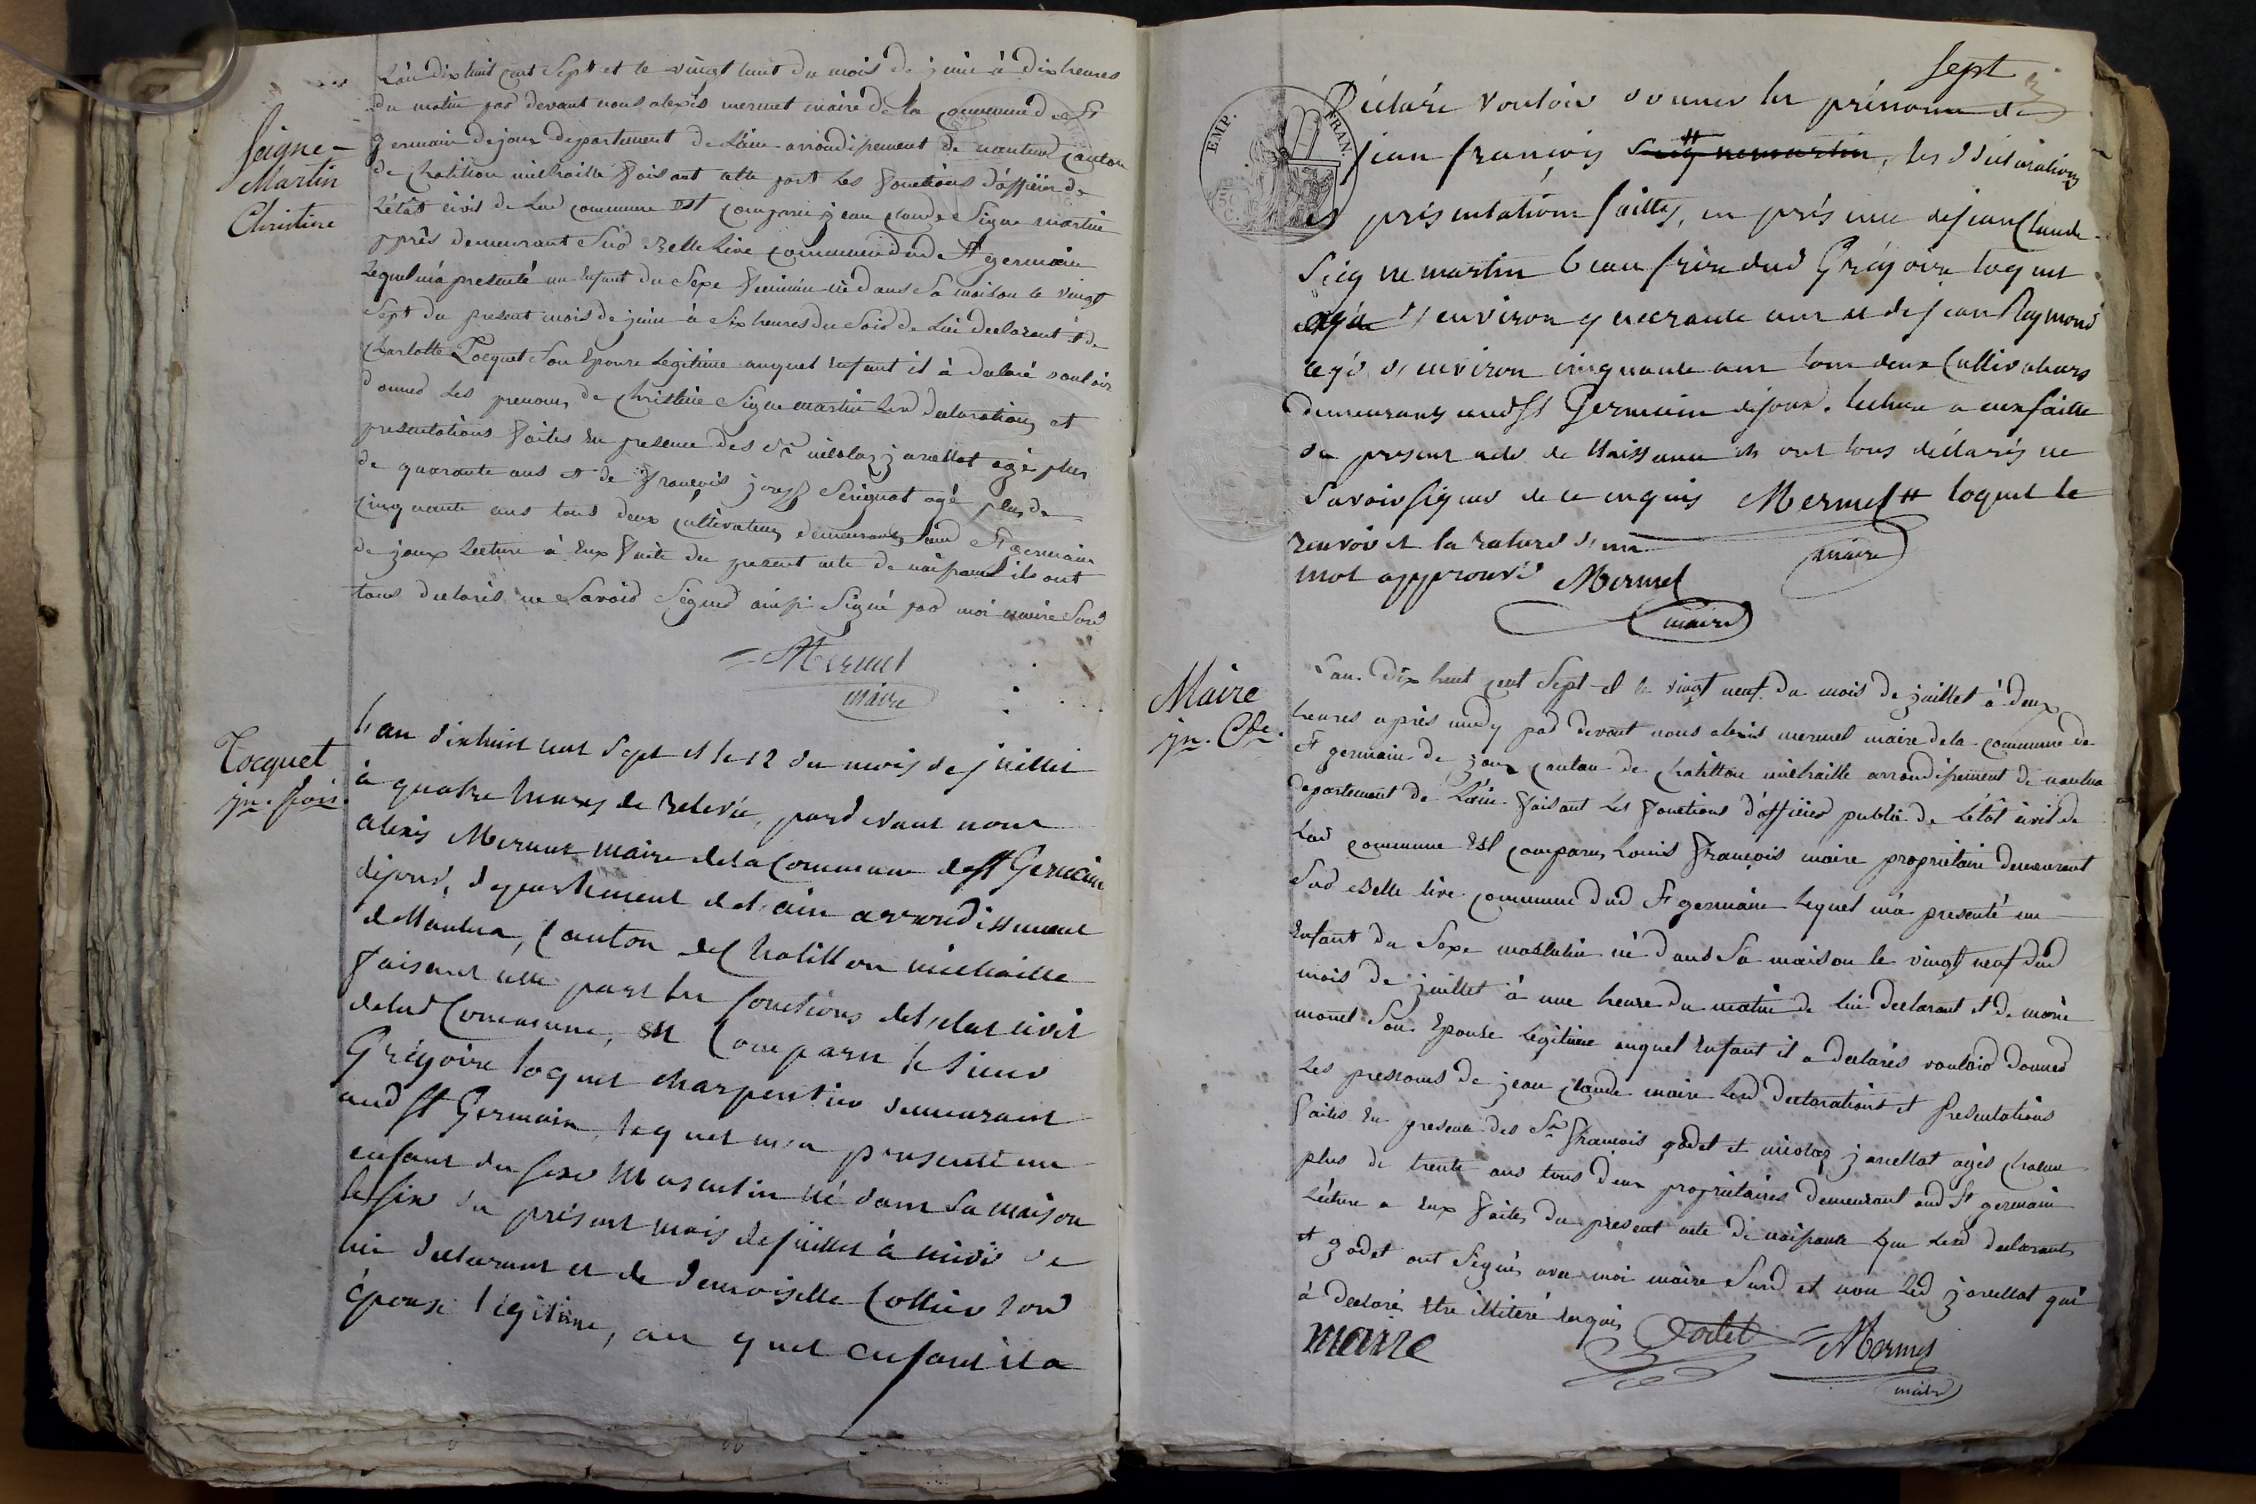 Seigne-
Martin
Christine
L'an dix huit cent Sept et le vingt huit du mois de juin à dix heures
du matin par devant nous alexis mermet maire de la commune de St
germain de joux departement de L'ain arrondissement de nantua canton
de Chatillon michaille faisant cette part les fonctions d'officier de
L'état civil de Lad commune Est comparu jean claude Signe martin
demeurant Sur Belle Live commune dud St germain
Lequel m'a presenté un Enfant du Sexe feminin né dans Sa maison le vingt
Sept du present mois de juin à Six heures du Soir de Lui declarant et de
Charlotte Tocquet Son Epouse Legitime auquel Enfant il à declaré vouloir
donner Les prenoms de Christine Signe martin Lesd declarations et
presentations faites En presence des Sr nicolas jarellot agé plus
de quarante ans et de françois joseph Serignat agé plus de
cinquante ans tous deux cultivateurs demeurants aud St germain
de joux Lecture à Eux faite du present acte de naissance ils ont
tous declarés ne Savoir Signer ainsi Signé par moi maire Sousd
Mermet
maire
Tocquet
jn. fois.
L'an dixhuit cent Sept et le 12 du mois de juillet
à quatre heures de relevée, pardevant nous
alexis Mermet maire de la Commune de St Germain
dejoux, departement de l'ain arrondissement
de Nantua, Canton de Chatillon michaille
faisant cette part les fonctions de l'etat civil
de lad Commune, est Comparu le Sieur
Grégoire toquet charpentier demeurant
aud St Germain, lequel m'a presenté un
enfant du sexe Masculin né dans sa maison
le six du présent mois de juillet à midi de
lui declarant et de demoiselle Collier son
épouse légitime, au quel enfant il a
sept
Déclaré vouloir donner les prénoms de
jean françois, les déclarations
et présentations faittes, en présence de jean Claude
Seigne martin beau frère dud Grégoire toquet
agé d'environ quarante ans et de jean Raymond
agé d'environ cinquante ans tous deux Cultivateurs
demeurants aud St Germain dejoux. lecture a eux faitte
du present acte de Naissance ils ont tous déclarés ne
Savoir signer de ce enquis Mermet # toquet le
renvoi et la rature d'un maire
mot approuvé Mermet
maire
EMP. FRAN.
Maire
jn. Cde.
L'an Dix huit cent Sept et le vingt neuf du mois de juillet à deux
heures après midy par devant nous alexis mermet maire de la commune de
St germain de joux canton de chatillon michaille arrondissement de nantua
departement de L'ain faisant Les fonctions d'officier public de L'état civil de
Lad commune Est comparu Louis françois maire proprietaire demeurant
Sur Belle live commune dud St germain Lequel m'a presenté un
Enfant du Sexe masculin né dans Sa maison le vingt neuf dud
mois de juillet à une heure du matin de Lui declarant et de marie
monet Son Epouse Legitime auquel Enfant il a declarés vouloir donner
Les prenoms de jean claude maire Lesd declarations et presentations
faites En presence des Srs françois godet et nicolas jarellot agés chacun
plus de trente ans tous deux proprietaires demeurant aud St germain
Lecture a Eux faites du present acte de naissance que Lesd declarants
et godet ont Signés avec moi maire Susd et non Led jarellot qui
à declaré Etre illiteré Enquis
maire Godet Mermet
maire